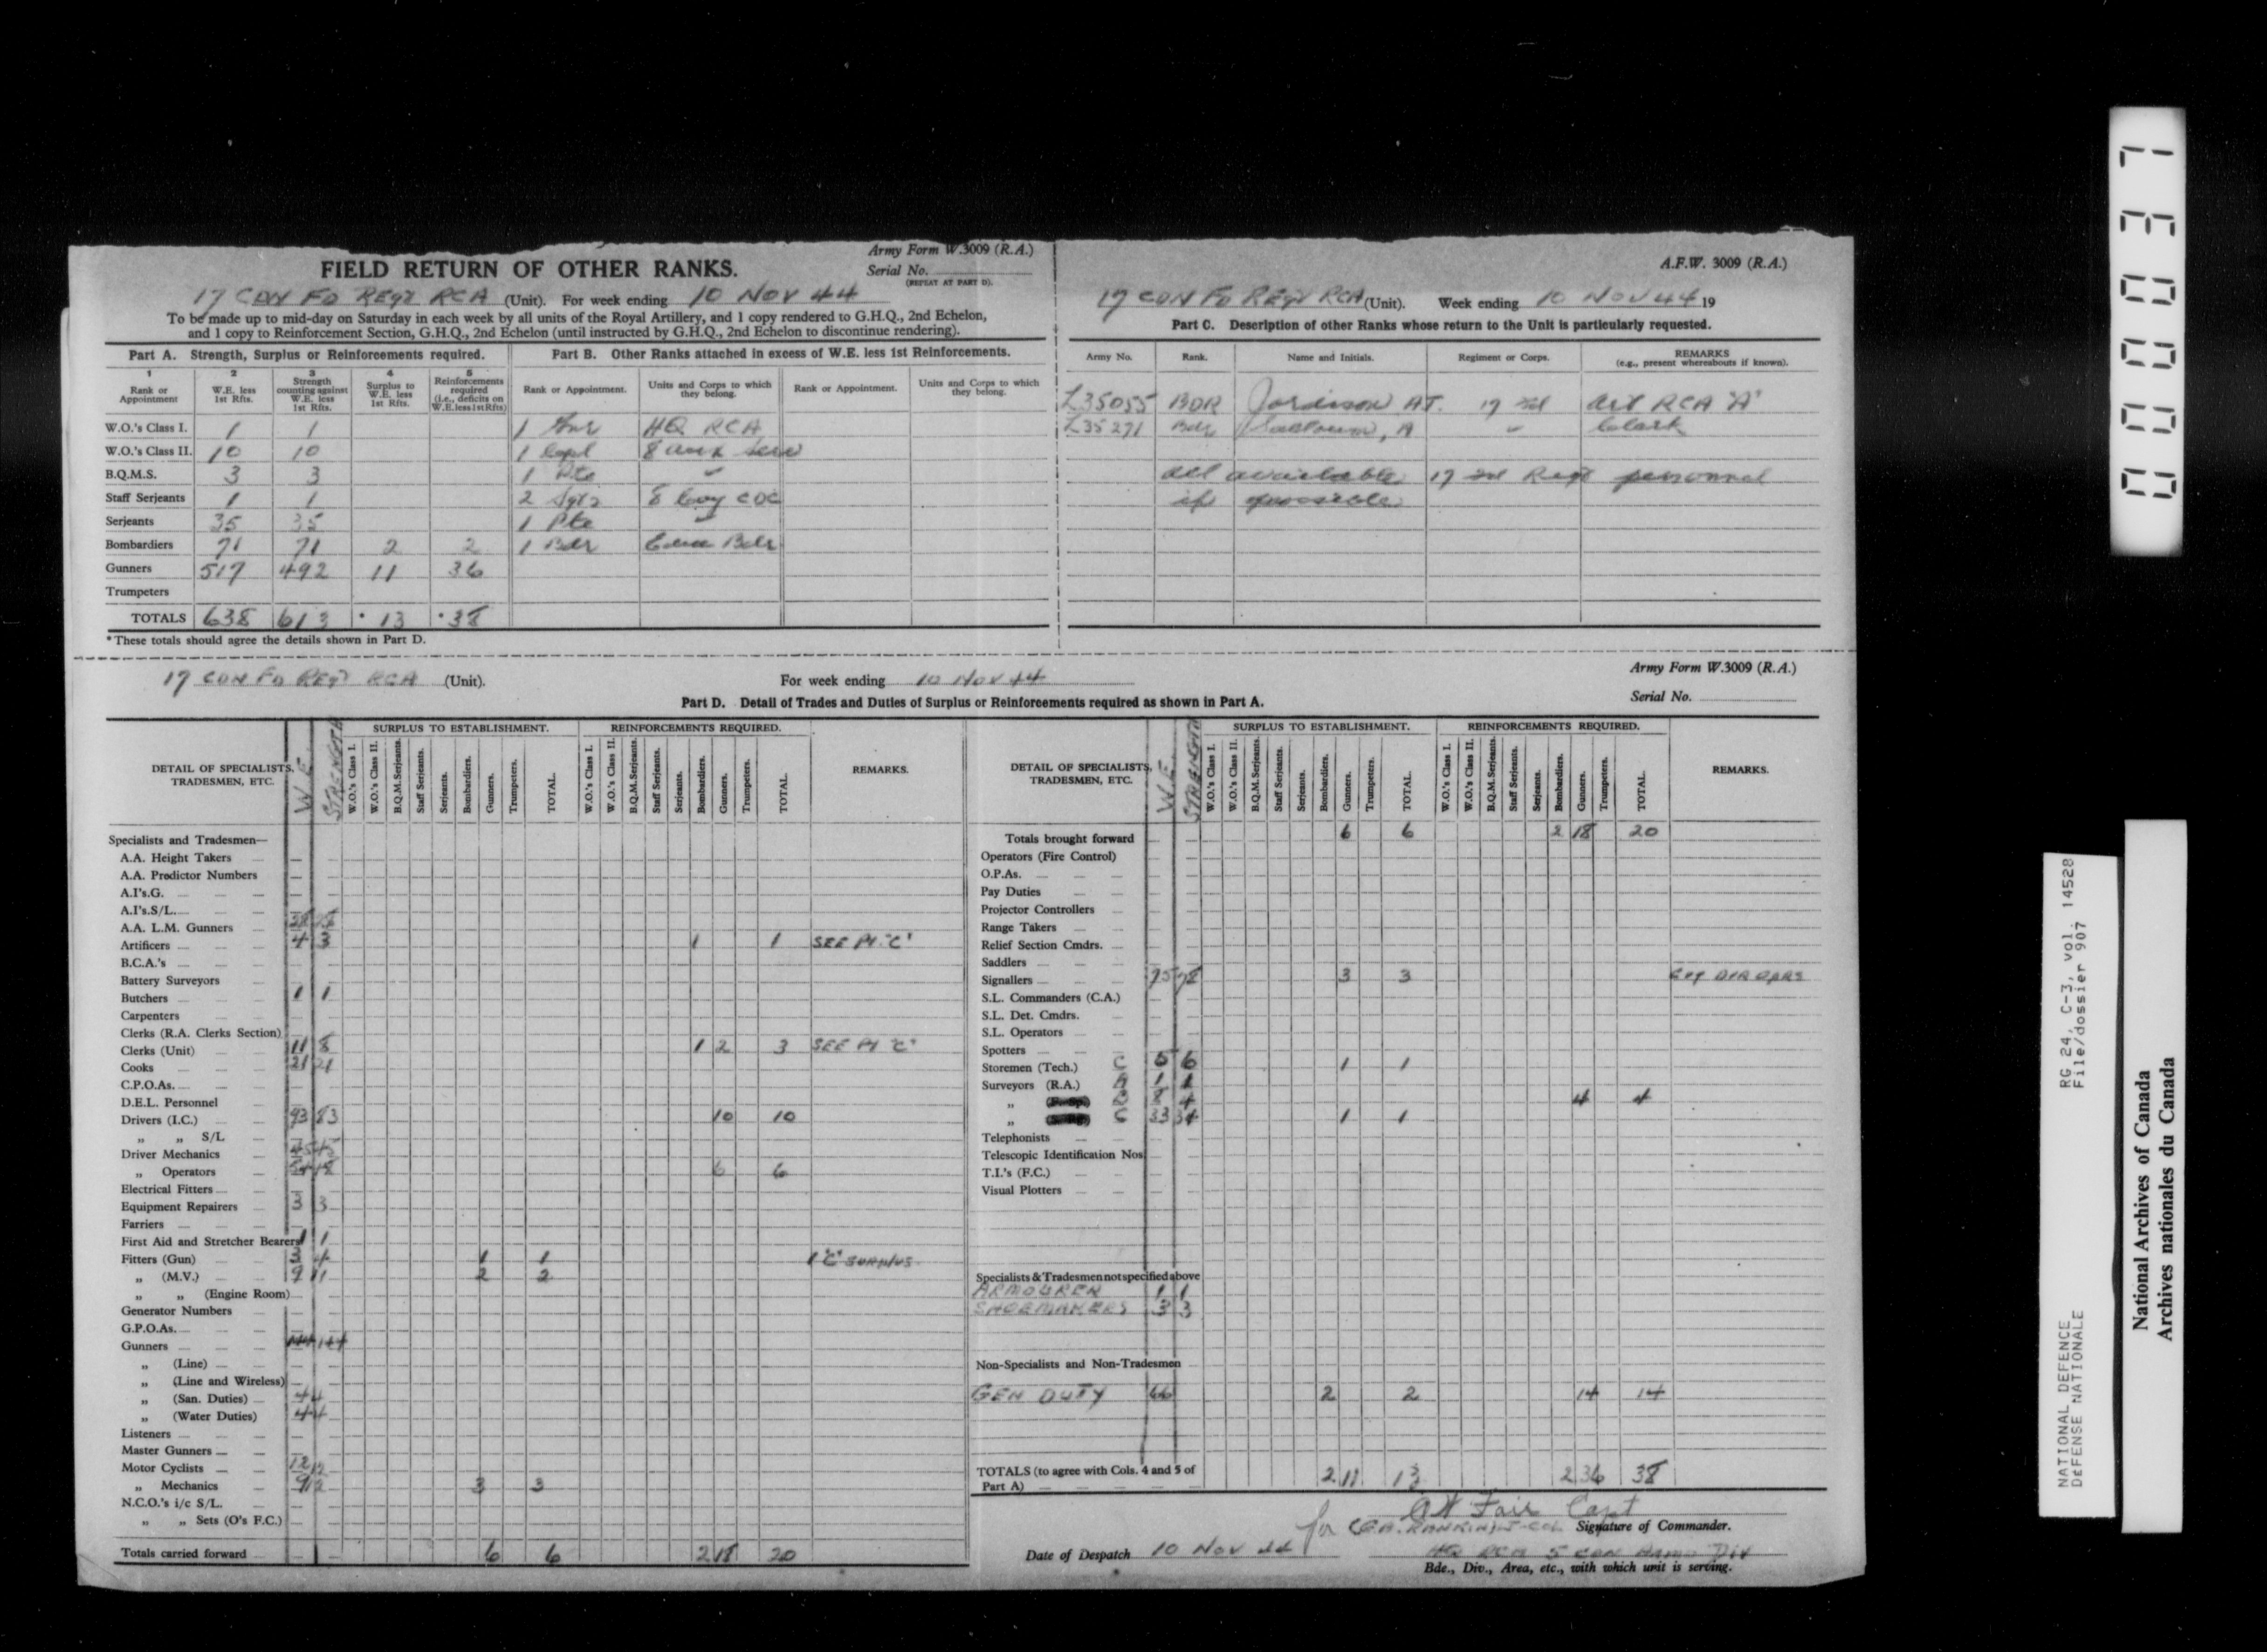 Army Form W.3009 (R.A.)
FIELD RETURN OF OTHER RANKS.
Serial No.
(REPEAT AT PART D).
17 CDN FD REGT RCA (Unit). For week ending 10 NOV 44
To be made up to mid-day on Saturday in each week by all units of the Royal Artillery, and 1 copy rendered to G.H.Q., 2nd Echelon,
and 1 copy to Reinforcement Section, G.H.Q., 2nd Echelon (until instructed by G.H.Q., 2nd Echelon to discontinue rendering).
Part A. Strength, Surplus or Reinforcements required.
1 2 3 4 5
Rank or Appointment
W.E. less 1st Rfts.
Strength counting against W.E. less 1st Rfts.
Surplus to W.E. less 1st Rfts.
Reinforcements required (i.e., deficits on W.E. less 1st Rfts)
W.O.'s Class I. 1 1
W.O.'s Class II. 10 10
B.Q.M.S. 3 3
Staff Serjeants 1 1
Serjeants 35 35
Bombardiers 71 71 2 2
Gunners 517 492 11 36
Trumpeters
TOTALS 638 613 * 13 * 38
* These totals should agree the details shown in Part D.
Part B. Other Ranks attached in excess of W.E. less 1st Reinforcements.
Rank or Appointment.
Units and Corps to which they belong.
Rank or Appointment.
Units and Corps to which they belong.
1 Gnr HQ RCA
1 Cpl 8
1 Pte "
2 Sgts 8 Coy CDC
1 Pte "
1 Bdr Bdr
A.F.W. 3009 (R.A.)
17 CDN FD REGT RCA (Unit). Week ending 10 NOV 44 19
Part C. Description of other Ranks whose return to the Unit is particularly requested.
Army No. Rank. Name and Initials. Regiment or Corps. REMARKS
(e.g., present whereabouts if known).
L35055 BDR Jordison AT. 17 Fd Art RCA "A"
L35271 Bdr A " Clerk
all available 17 Fd Regt personnel
if possible
17 CDN FD REGT RCA (Unit).
For week ending 10 NOV 44
Army Form W.3009 (R.A.)
Serial No.
Part D. Detail of Trades and Duties of Surplus or Reinforcements required as shown in Part A.
DETAIL OF SPECIALISTS, TRADESMEN, ETC.
W.E.
STRENGTH
SURPLUS TO ESTABLISHMENT.
W.O.'s Class I. W.O.'s Class II. B.Q.M.Serjeants. Staff Serjeants. Serjeants. Bombardiers. Gunners. Trumpeters. TOTAL.
REINFORCEMENTS REQUIRED.
W.O.'s Class I. W.O.'s Class II. B.Q.M.Serjeants. Staff Serjeants. Serjeants. Bombardiers. Gunners. Trumpeters. TOTAL.
REMARKS.
Specialists and Tradesmen—
A.A. Height Takers
A.A. Predictor Numbers
A.I's.G.
A.I's.S/L.
A.A. L.M. Gunners
Artificers 4 3 1 1 SEE Pt "C"
B.C.A.'s
Battery Surveyors
Butchers 1 1
Carpenters
Clerks (R.A. Clerks Section)
Clerks (Unit) 11 8 1 2 3 SEE Pt "C"
Cooks 21 21
C.P.O.As.
D.E.L. Personnel
Drivers (I.C.) 93 83 10 10
„ „ S/L
Driver Mechanics 45 45
„ Operators 54 48 6 6
Electrical Fitters
Equipment Repairers 3 3
Farriers
First Aid and Stretcher Bearers 1 1
Fitters (Gun) 3 4 1 1 1 "C" SURPLUS
„ (M.V.) 9 11 2 2
„ „ (Engine Room)
Generator Numbers
G.P.O.As.
Gunners 144 144
„ (Line)
„ (Line and Wireless)
„ (San. Duties) 4 4
„ (Water Duties) 4 4
Listeners
Master Gunners
Motor Cyclists 12 12
„ Mechanics 9 12 3 3
N.C.O.'s i/c S/L.
„ „ Sets (O's F.C.)
Totals carried forward 6 6 2 18 20
DETAIL OF SPECIALISTS, TRADESMEN, ETC.
W.E.
STRENGTH
SURPLUS TO ESTABLISHMENT.
W.O.'s Class I. W.O.'s Class II. B.Q.M.Serjeants. Staff Serjeants. Serjeants. Bombardiers. Gunners. Trumpeters. TOTAL.
REINFORCEMENTS REQUIRED.
W.O.'s Class I. W.O.'s Class II. B.Q.M.Serjeants. Staff Serjeants. Serjeants. Bombardiers. Gunners. Trumpeters. TOTAL.
REMARKS.
Totals brought forward 6 6 2 18 20
Operators (Fire Control)
O.P.As.
Pay Duties
Projector Controllers
Range Takers
Relief Section Cmdrs.
Saddlers
Signallers 75 78 3 3
S.L. Commanders (C.A.)
S.L. Det. Cmdrs.
S.L. Operators
Spotters
Storemen (Tech.) C 5 6 1 1
Surveyors (R.A.) A 1 1
„ B 8 4 4 4
„ C 33 34 1 1
Telephonists
Telescopic Identification Nos
T.I.'s (F.C.)
Visual Plotters
Specialists & Tradesmen not specified above
ARMOURER 1 1
SHOEMAKERS 3 3
Non-Specialists and Non-Tradesmen
GEN DUTY 66 2 2 14 14
TOTALS (to agree with Cols. 4 and 5 of Part A) 2 11 13 2 36 38
AH Fair Capt
for (R.A. RANKIN) Lt-COL Signature of Commander.
Date of Despatch 10 NOV 44
HQ RCA 5 CDN ARMD DIV
Bde., Div., Area, etc., with which unit is serving.
000037
RG 24, C-3, vol. 14528
File/dossier 907
NATIONAL DEFENCE
DEFENSE NATIONALE
National Archives of Canada
Archives nationales du Canada